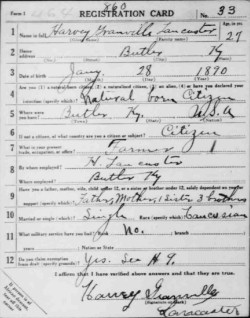 Form 1
REGISTRATION CARD
No. 33
1 Name in full Harvey Granville Lancaster
(Given name) (Family name)
Age, in yrs.
27
2 Home address Butler Ky
3 Date of birth Jany 28 1890
(Month) (Day) (Year)
4 Are you (1) a natural-born citizen, (2) a naturalized citizen, (3) an alien, (4) or have you declared your
intention (specify which)? Natural born Citizen
5 Where were you born? Butler Ky. U.S.A
6 If not a citizen, of what country are you a citizen or subject? Citizen
7 What is your present trade, occupation, or office? Farmer
8 By whom employed? H. Lancaster
Where employed? Butler Ky
9 Have you a father, mother, wife, child under 12, or a sister or brother under 12, solely dependent on you for
support (specify which)? Father, Mother, 1 Sister 3 brothers
10 Married or single (which)? Single Race (specify which)? Caucasian
11 What military service have you had? Rank No.
Nation or State
12 Do you claim exemption from draft (specify grounds)? Yes. See # 9.
I affirm that I have verified above answers and that they are true.
Harvey Granville
Lancaster